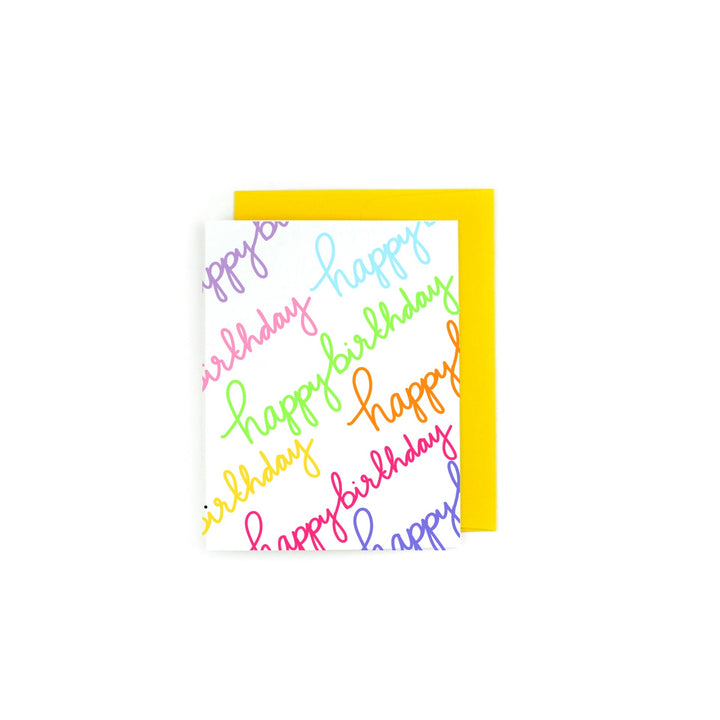 happy bi
happy b
birthday
happy birthday
happy b
birthday
happy birthday
happy